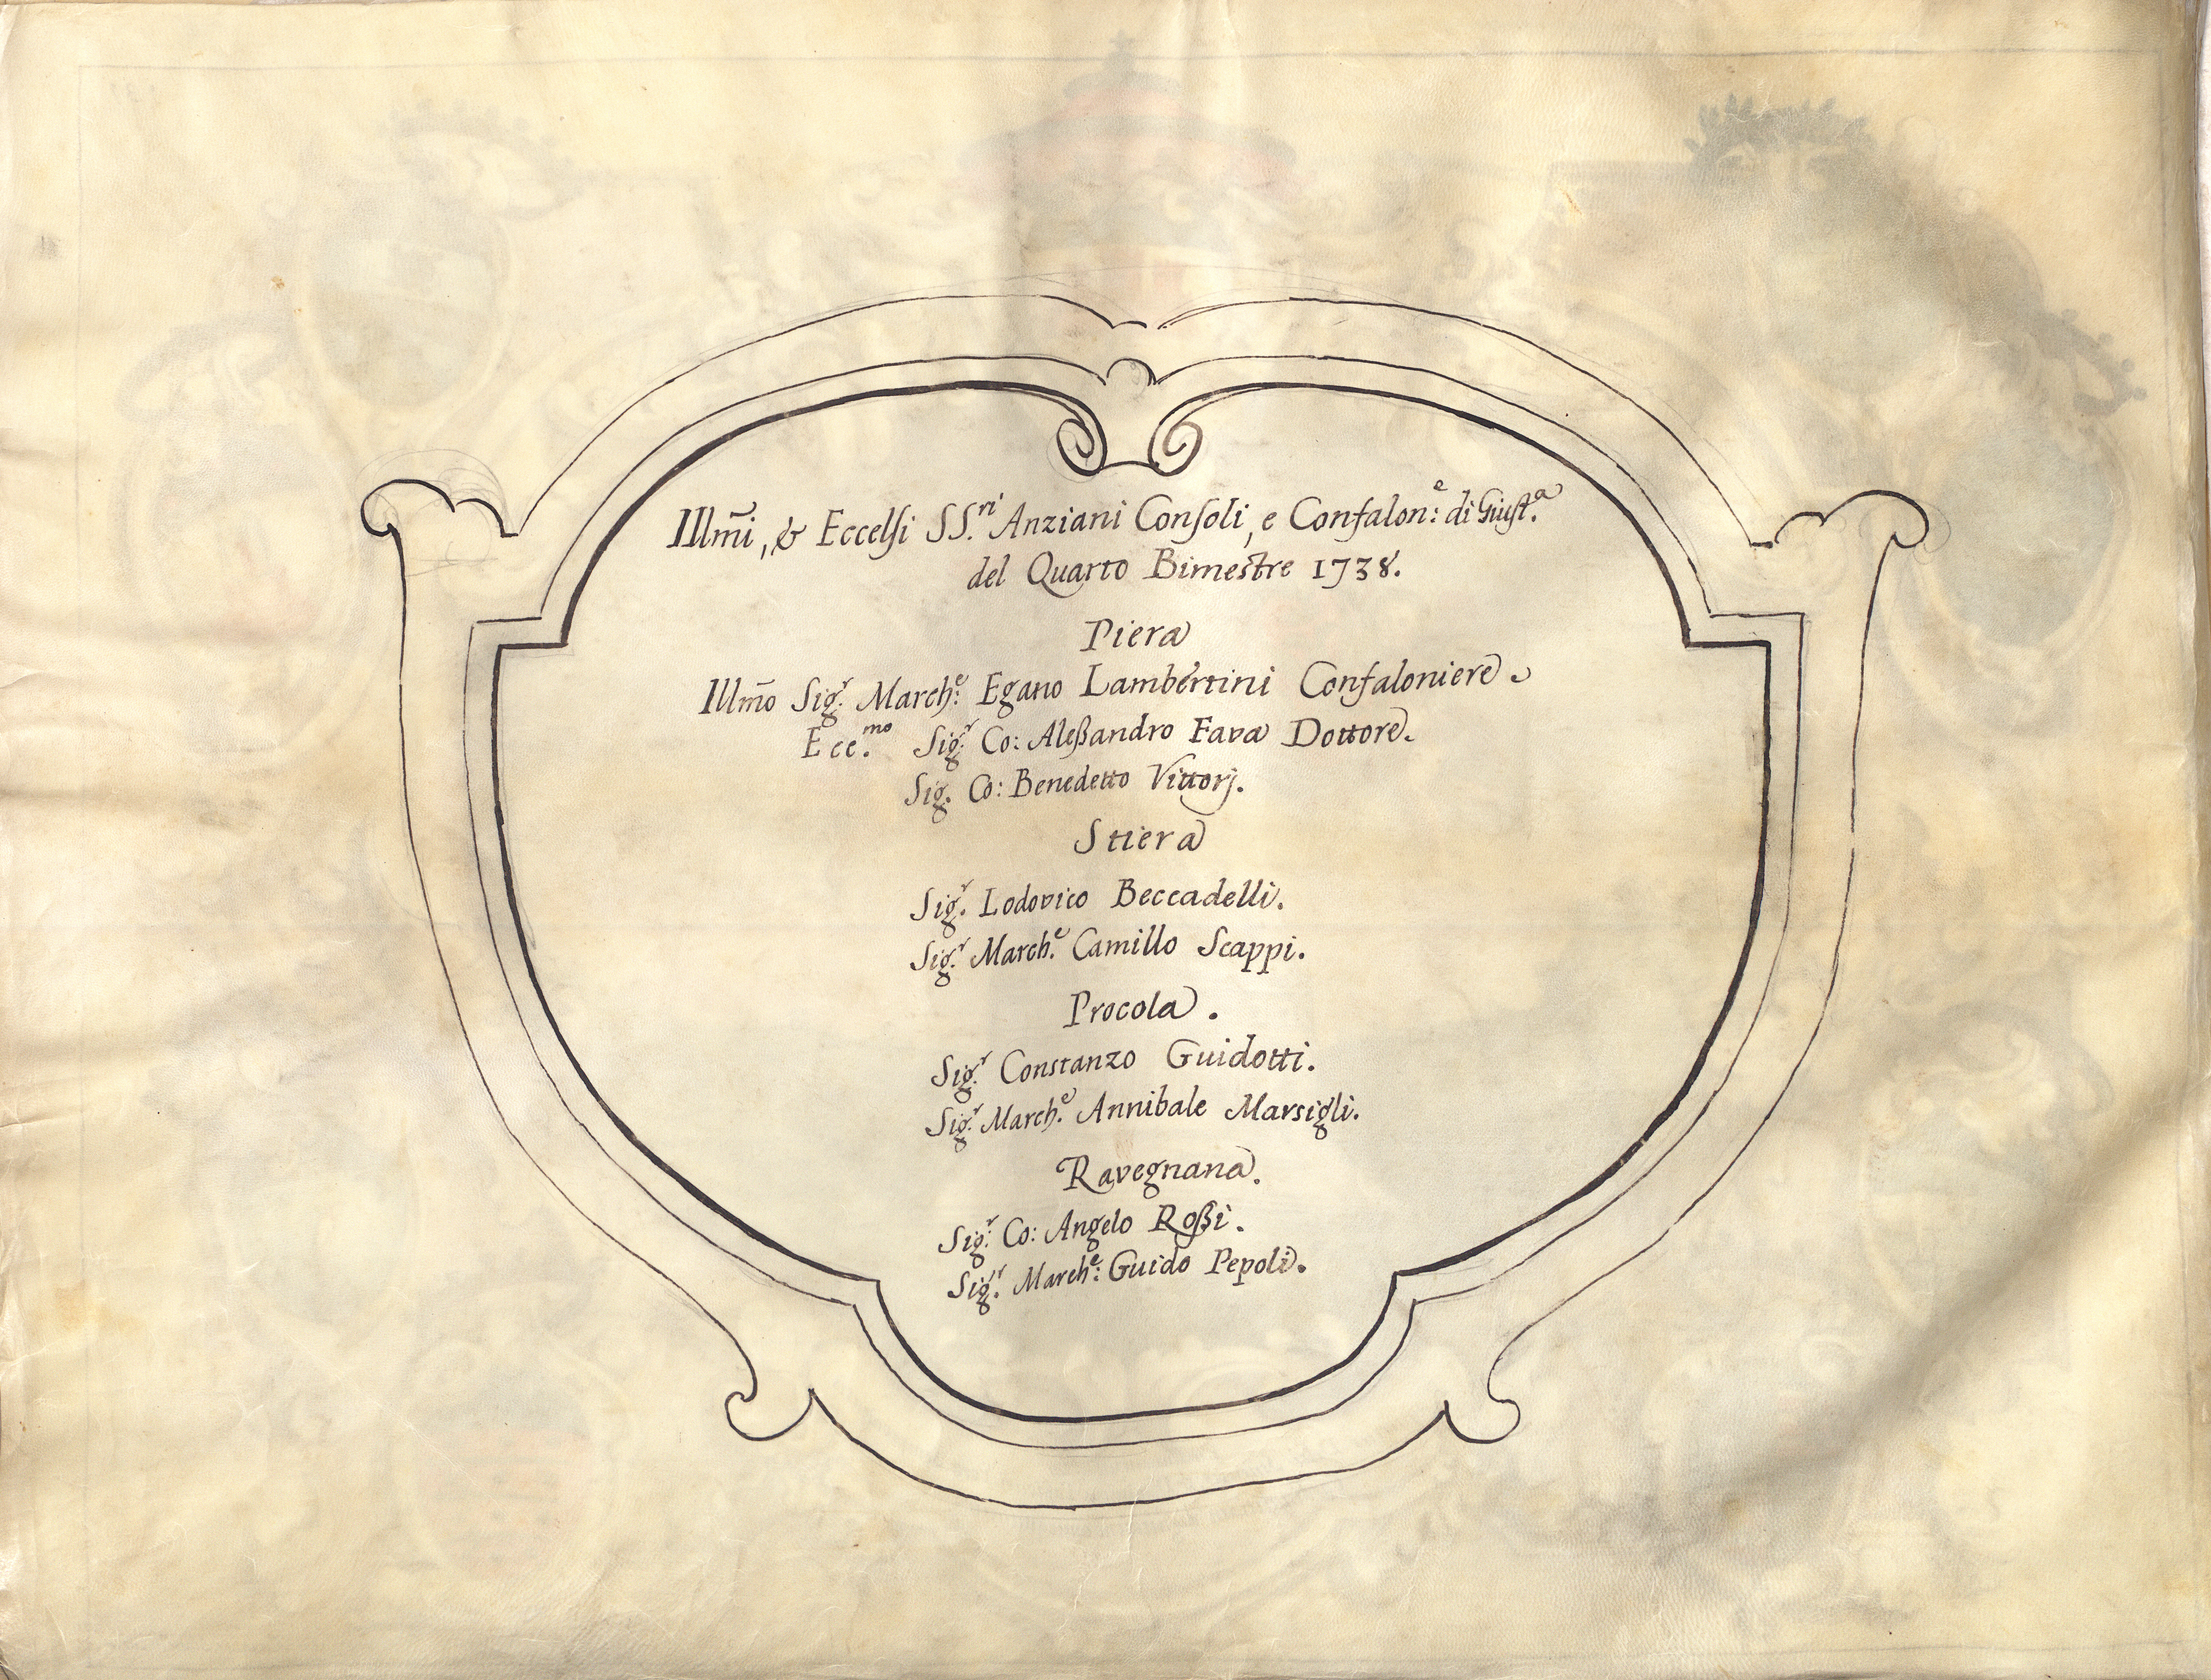 Illm̃i, & Eccelsi SS.ri Anziani Consoli, e Confalon:e di Giust.a
del Quarto Bimestre 1738.
Piera
Illm̃o Sig.r March:e Egano Lambertini Confaloniere.
Ecc.mo Sig.r Co: Aleßandro Fava Dottore.
Sig. Co: Benedetto Vittorj.
Stiera
Sig.r Lodovico Beccadelli.
Sig.r March.e Camillo Scappi.
Procola.
Sig.r Constanzo Guidotti.
Sig.r March.e Annibale Marsigli.
Ravegnana.
Sig.r Co: Angelo Roßi.
Sig.r March:e Guido Pepoli.